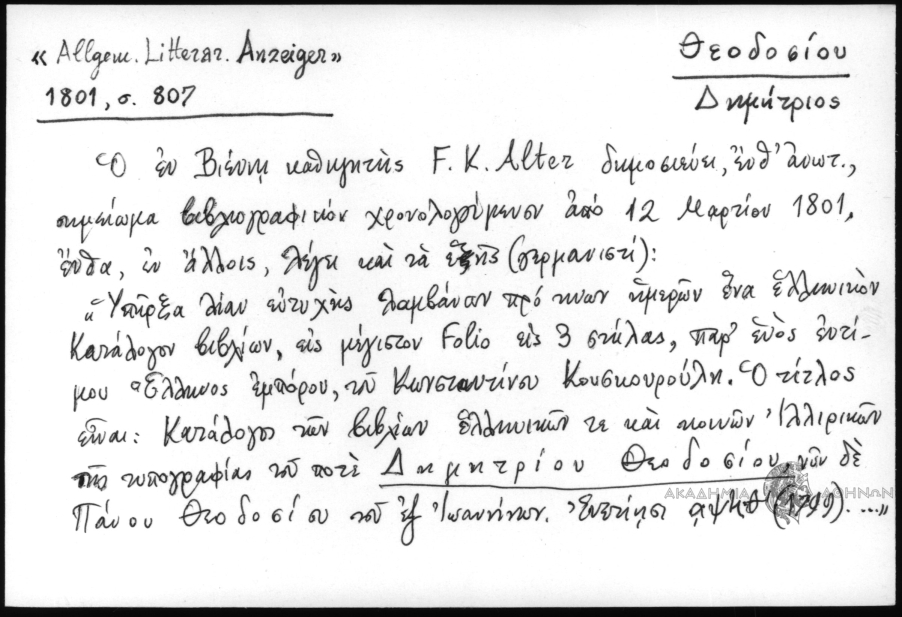 «Allgem. Litterar. Anzeiger»
1801, σ. 807
Θεοδοσίου
Δημήτριος
Ὁ ἐν Βιέννῃ καθηγητὴς F. K. Alter δημοσιεύει, ἔνθ' ἀνωτ.,
σημείωμα βιβλιογραφικὸν χρονολογούμενον ἀπὸ 12 Μαρτίου 1801,
ἔνθα, ἐν ἄλλοις, λέγει καὶ τὰ ἑξῆς (γερμανιστί):
"Ὑπῆρξα λίαν εὐτυχὴς λαμβάνων πρό τινων ἡμερῶν ἕνα ἑλληνικὸν
Κατάλογον βιβλίων, εἰς μέγιστον Folio εἰς 3 στήλας, παρ' ἑνὸς ἐντί-
μου Ἕλληνος ἐμπόρου, τοῦ Κωνσταντίνου Κουσκουρούλη. Ὁ τίτλος
εἶναι: Κατάλογος τῶν βιβλίων ἑλληνικῶν τε καὶ κοινῶν Ἰλλιρικῶν
τῆς τυπογραφίας τοῦ ποτὲ Δημητρίου Θεοδοσίου, νῦν δὲ
Πάνου Θεοδοσίου τοῦ ἐξ Ἰωαννίνων. Ἐνετίῃσι ͵αψ
ΑΚΑΔΗΜΙΑ ΑΘΗΝΩΝ